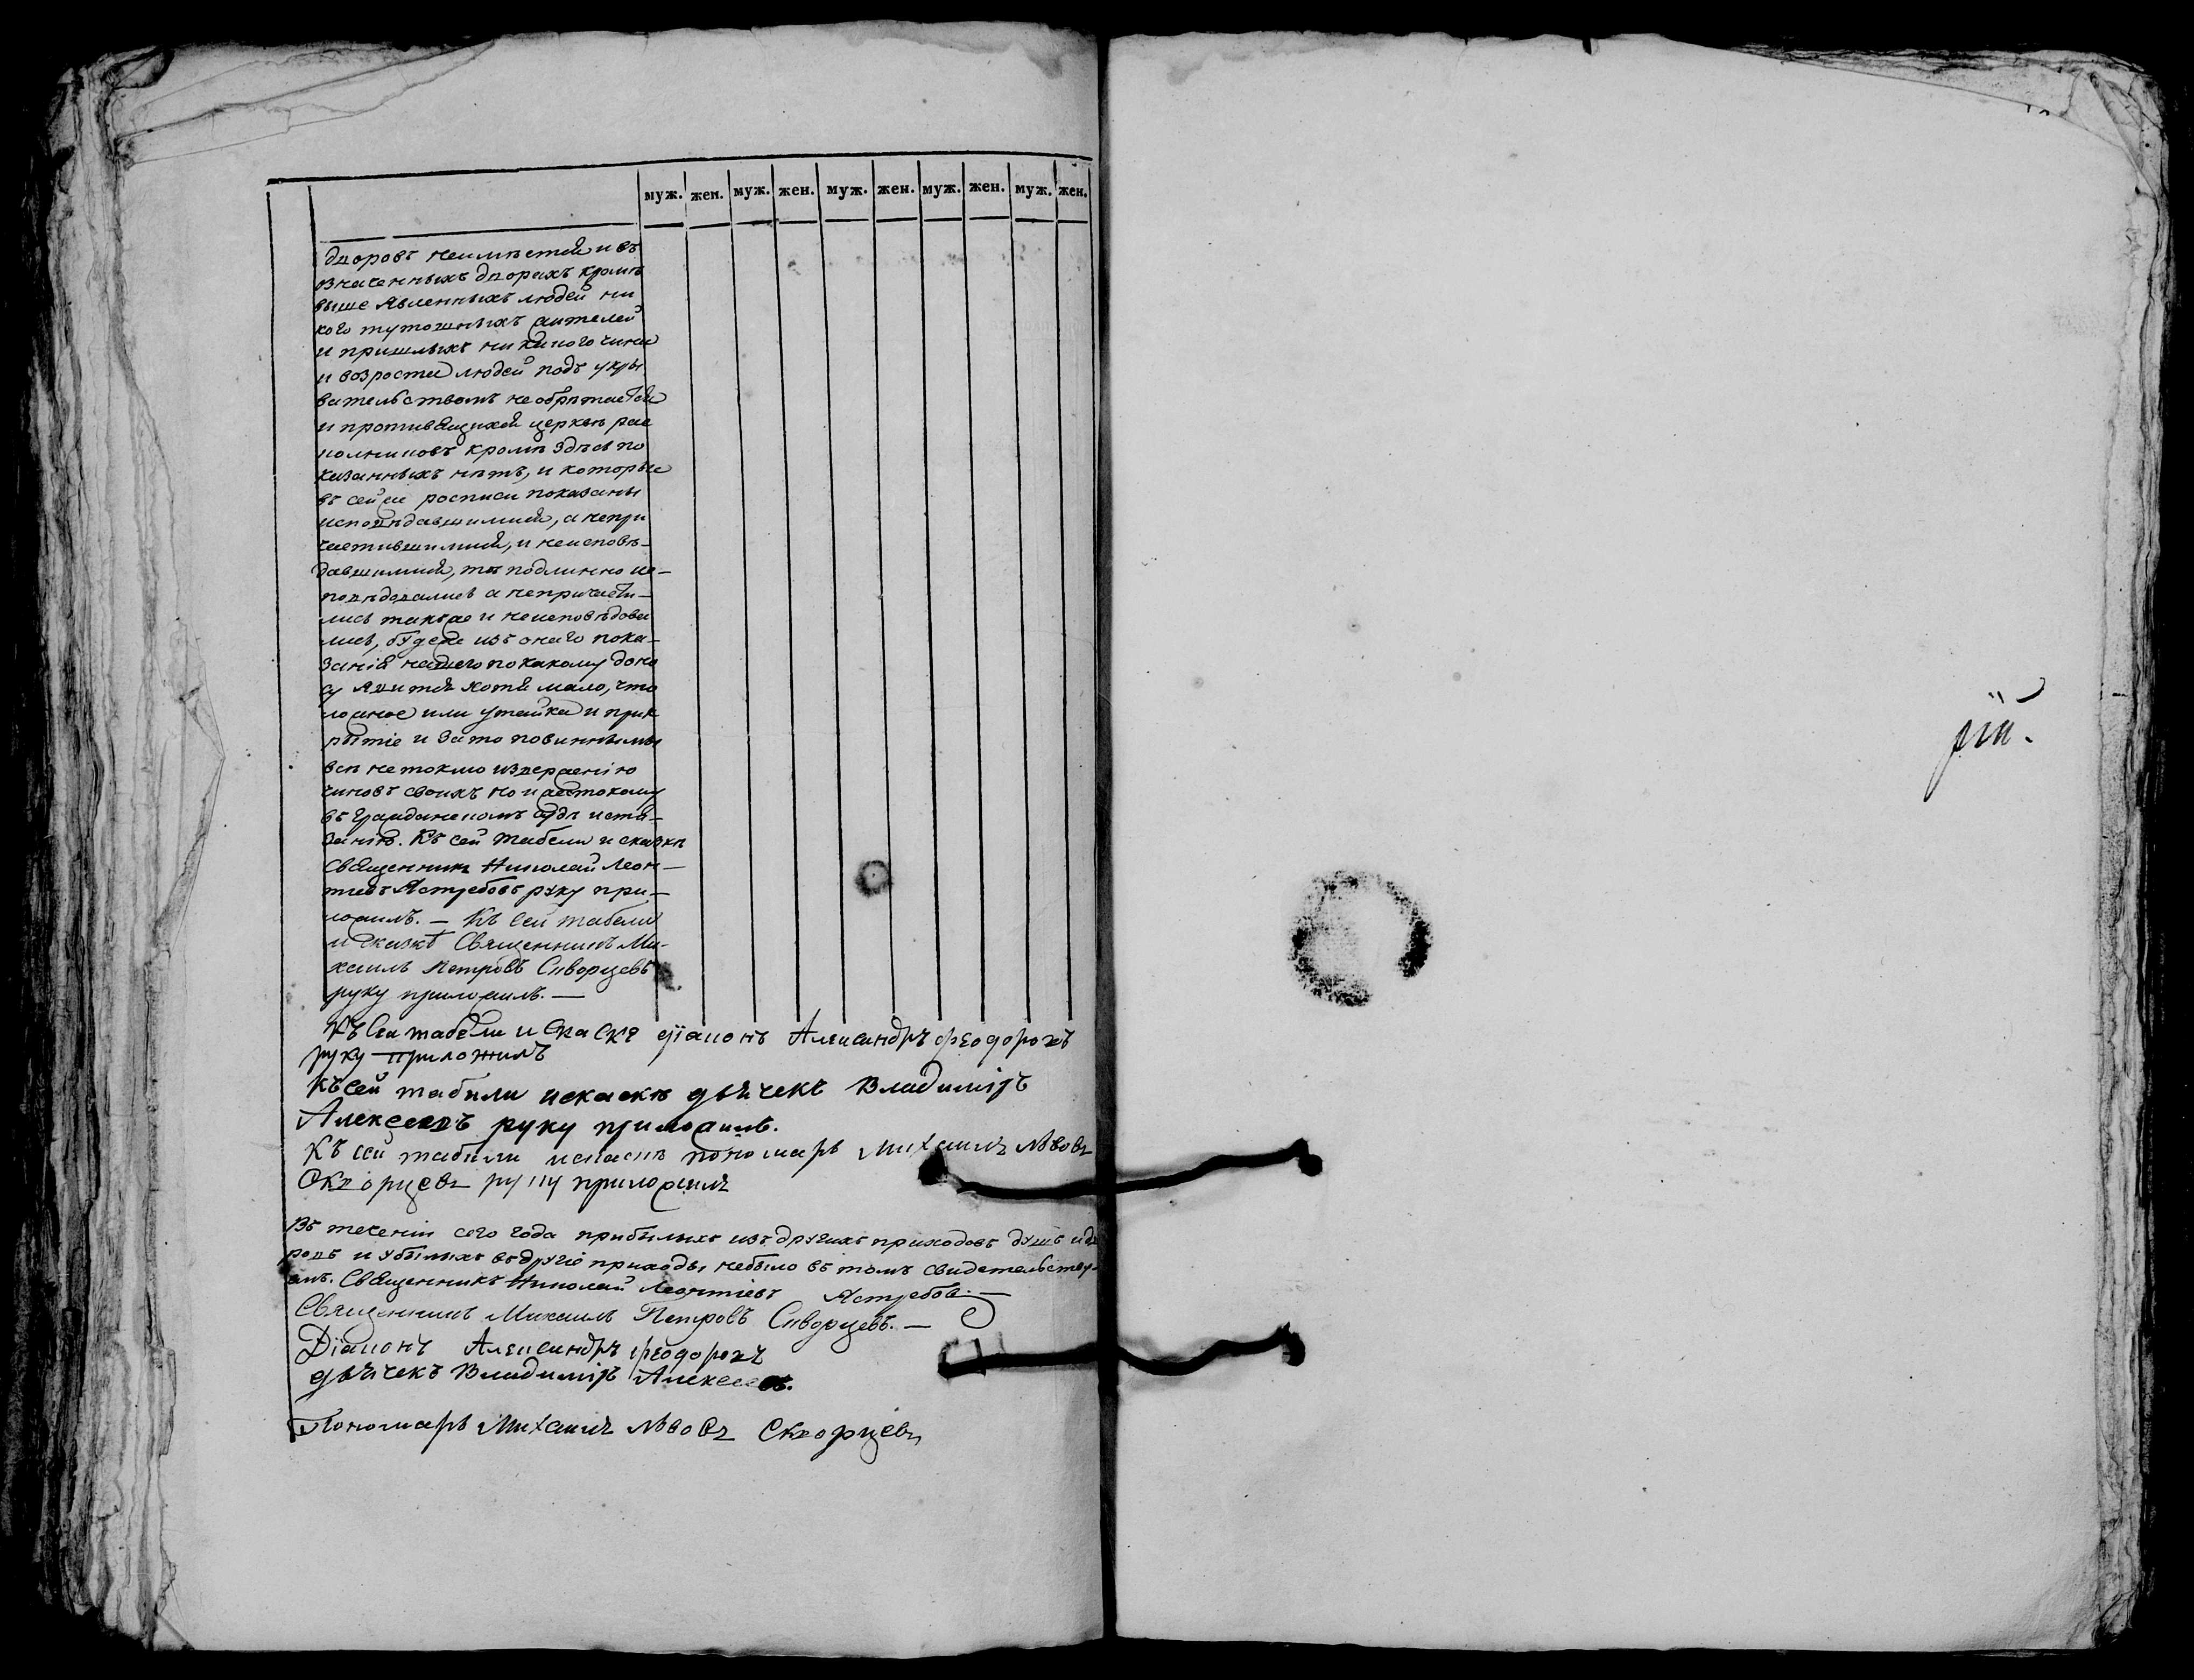 муж. жен. муж. жен. муж. жен. муж. жен. муж. жен.
дворовъ неимѣется и въ
означенныхъ дворахъ кромѣ
выше явленныхъ людей ни
кого тутошныхъ жителей
и пришлыхъ ни какого чина
и возраста людей подъ укры
вательствомъ не обрѣтается
и противящихся церкви рас
кольниковъ кромѣ здѣсь по
казанныхъ нѣтъ, и которые
въ сей же росписи показаны
исповѣдавшимися, а непри
частившимися, и неисповѣ-
давшимися, тѣ подлинно ис-
повѣдовались а непричасти-
лись такъже и неисповѣдова
лись, буде же изъ онаго пока-
занія нашего по какому доно
су явится хотя мало, что
ложное или утайка и прик
рытіе и за то повинны мы
всѣ не токмо изверженію
чиновъ своихъ но и жестокому
въ гражданскомъ судѣ истя-
занію. Къ сей табели и сказкѣ
Священникъ Николай Леон-
тіевъ Ястребовъ руку при-
ложилъ. — Къ сей табели
и сказкѣ Священникъ Ми-
хаилъ Петровъ Скворцевъ
руку приложилъ. —
Къ сей табели и скаскѣ діаконъ Александръ Феодоровъ
руку приложилъ
Къ сей табели искаскѣ дьячекъ Владиміръ
Алексеевъ руку приложилъ.
Къ сей табели искаскѣ пономарь Михаилъ Львовъ
Скворцевъ руку приложилъ
Въ теченіи сего года прибылыхъ изъ другихъ приходовъ душъ и дво
ровъ и убылыхъ въ другіе приходы небыло въ томъ свидетельству-
емъ. Священникъ Николай Леонтіевъ Ястребовъ. —
Священникъ Михаилъ Петровъ Скворцевъ. —
Діаконъ Александръ Феодоровъ
дьячекъ Владиміръ Алексеевъ.
Пономарь Михаилъ Львовъ Скворцевъ